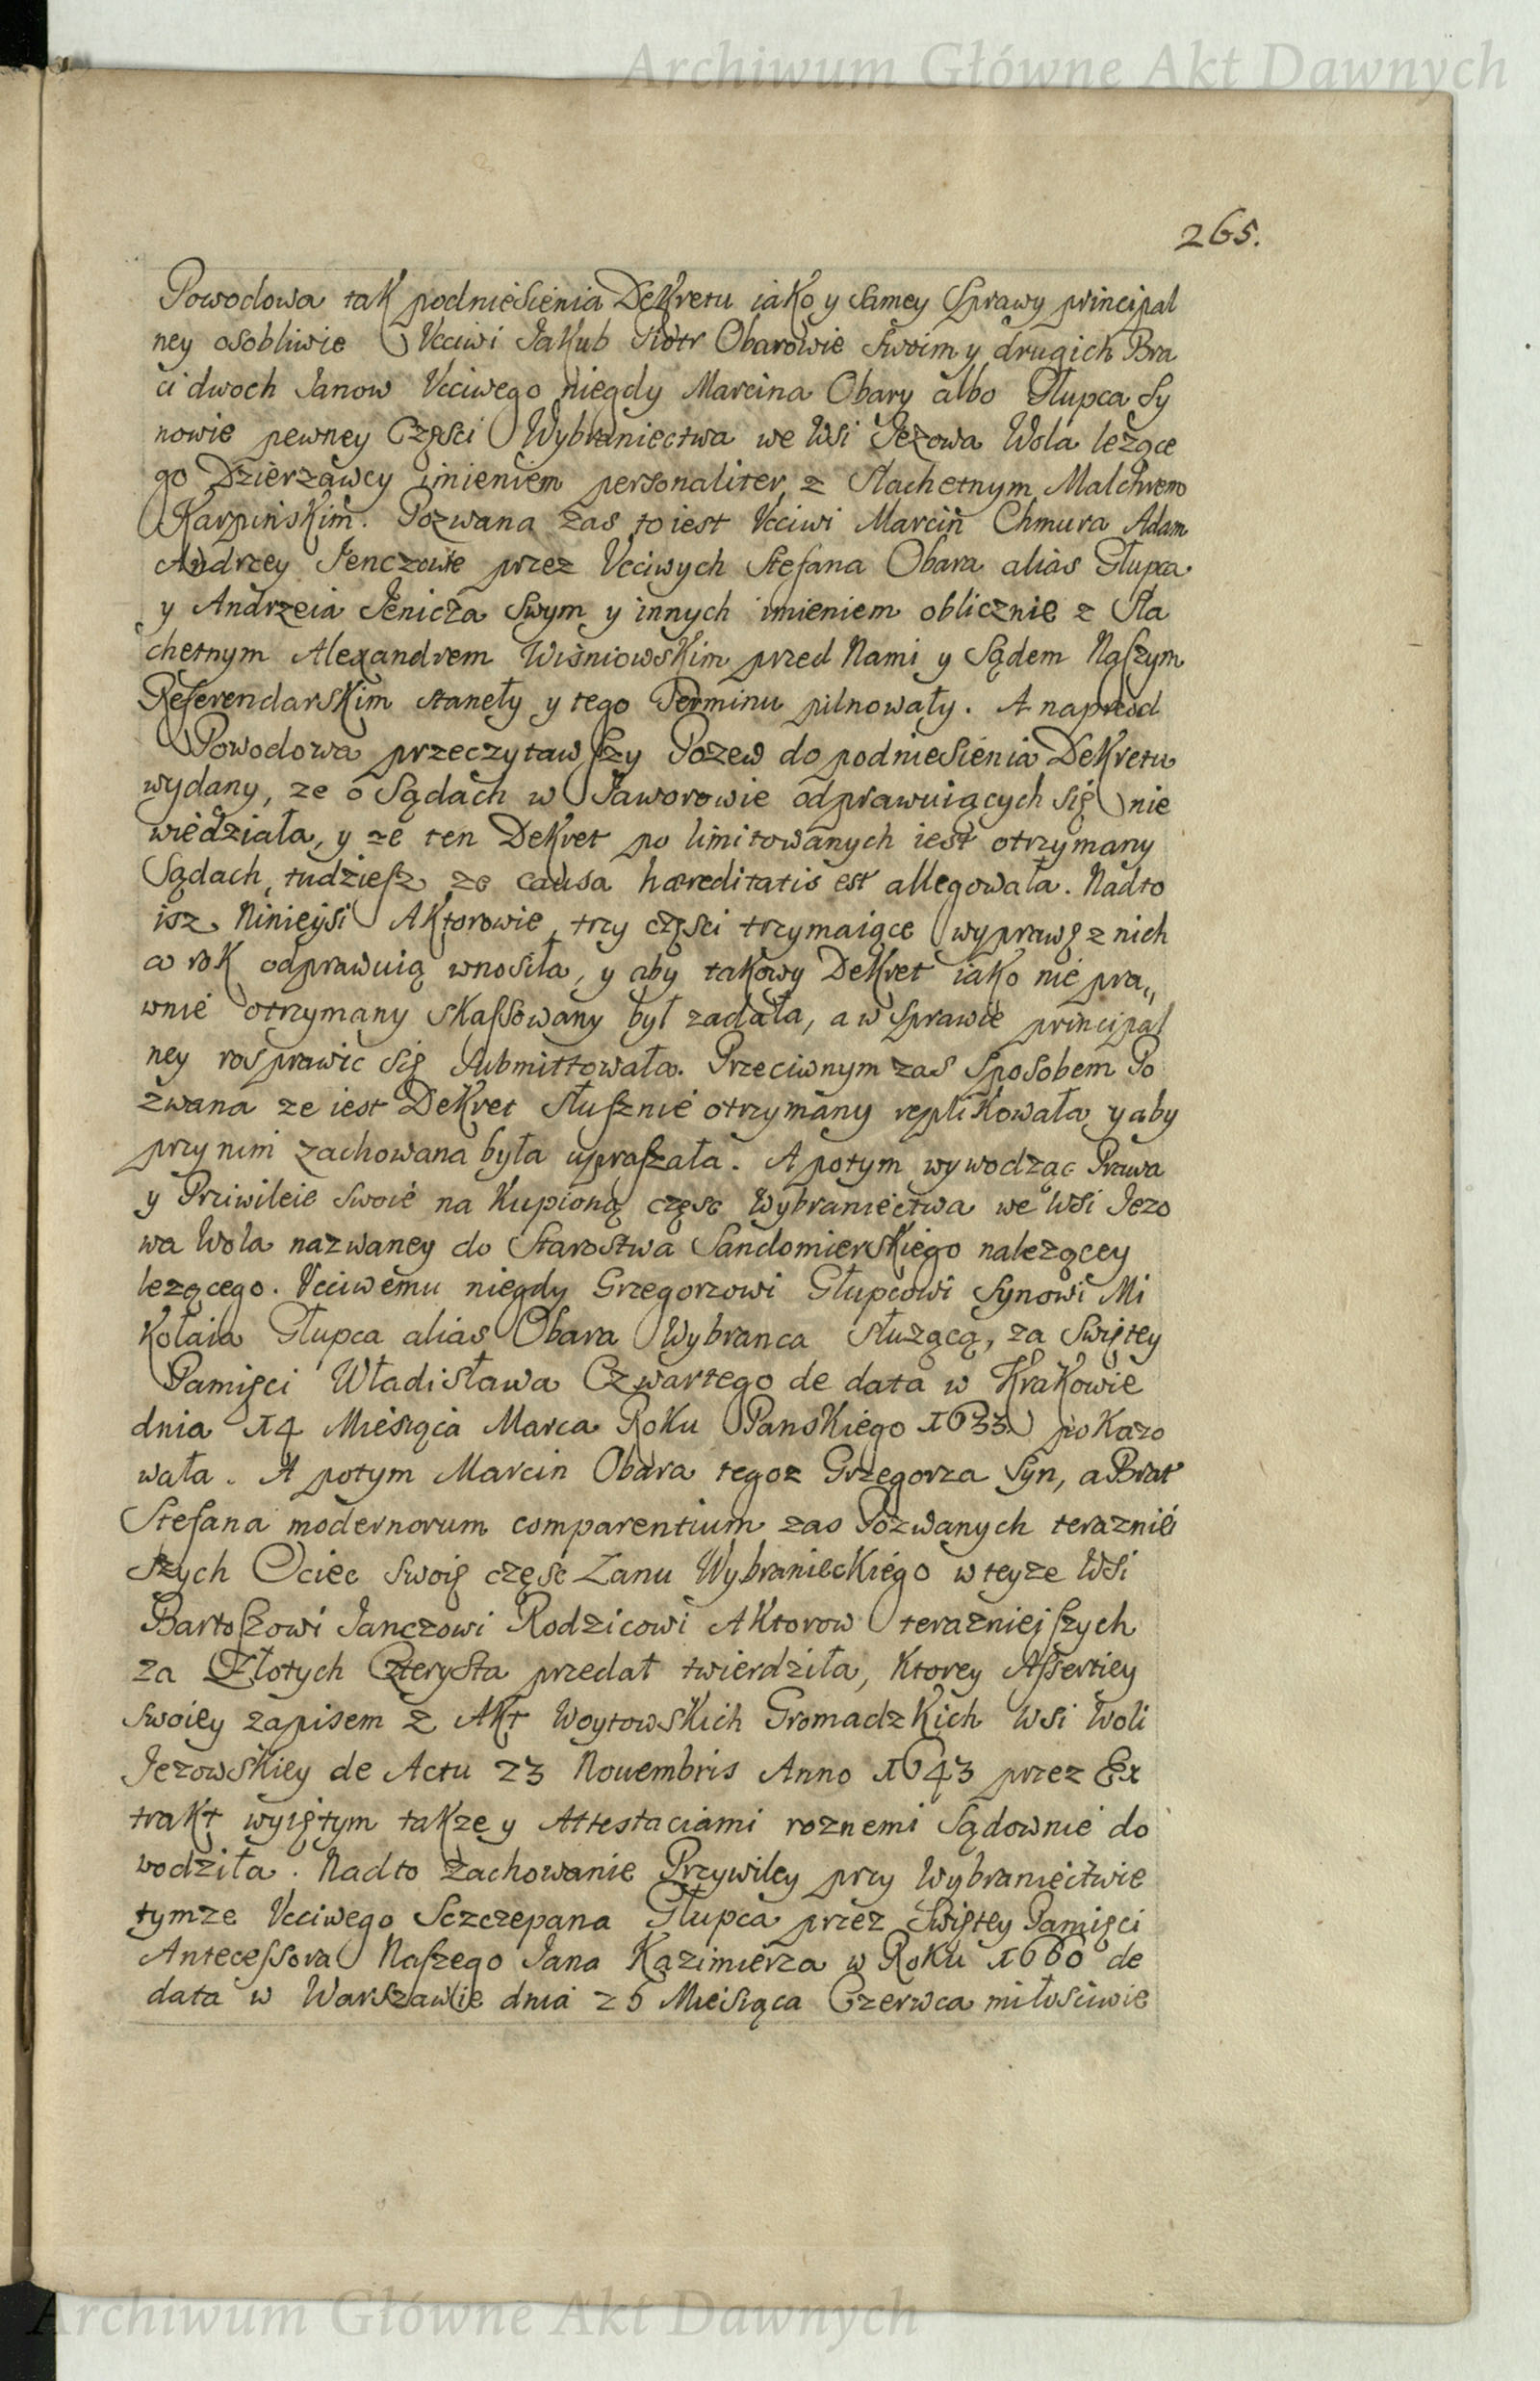 Archiwum Główne Akt Dawnych
265.
Powodowa tak podniesienia Dekretu iako y samey sprawy principal
ney osobliwie Ucciwi Jakub Piotr Obarowie swoim y drugich Bra
ci dwoch Janow Ucciwego niegdy Marcina Obary albo Głupca Sy
nowie pewney Części Wybraniectwa we Wsi Jezowa Wola lezące
go Dzierzawcy imieniem personaliter z Slachetnym Malchrem
Karpinskim. Pozwana zas to iest Ucciwi Marcin Chmura Adam
Andrzey Jenczowie przez Ucciwych Stefana Obara alias Głupca
y Andrzeia Jenicza swym y innych imieniem oblicznie z Sla
chetnym Alexandrem Wiśniowskim przed Nami y Sądem Naszym
Referendarskim stanęły y tego Terminu pilnowały. A naprzod
Powodowa przeczytawszy Pozew do podniesienia Dekretu
wydany, ze o Sądach w Jaworowie odprawuiących się nie
wiedziała, y ze ten Dekret po limitowanych iest otrzymany
Sądach, tudziesz ze causa hæreditatis est allegowała. Nadto
isz Ninieysi Aktorowie, trzy części trzymaiące wyprawę z nich
co rok odprawuią wnosiła, y aby takowy Dekret iako nie pra„
wnie otrzymany skassowany był zadała, a w sprawie principal
ney rosprawic się submittowała. Przeciwnym zas sposobem Po
zwana ze iest Dekret słusznie otrzymany replikowała y aby
przy nim zachowana była upraszała. A potym wywodząc Prawa
y Priwileie swoie na kupioną częsc Wybraniectwa we Wsi Jezo
wa Wola nazwaney do Starostwa Sandomierskiego nalezącey
lezącego. Ucciwemu niegdy Grzegorzowi Głupcowi Synowi Mi
kołaia Głupca alias Obara Wybranca słuzącą, za Swiętey
Pamięci Władisława Czwartego de data w Krakowie
dnia 14 Miesiąca Marca Roku Panskiego 1633 pokazo
wała. A potym Marcin Obara tegoz Grzegorza Syn, a Brat
Stefana modernorum comparentium zas Pozwanych teraznie
szych Ociec swoię częsc Łanu Wybranieckiego w teyze Wsi
Bartoszowi Janczowi Rodzicowi Aktorow terazniejszych
za Złotych Czterysta przedał twierdziła, ktorey Assertiey
swoiey zapisem z Akt Woytowskich Gromadzkich Wsi Woli
Jezowskiey de Actu 23 Nouembris Anno 1643 przez Ex
trakt wyiętym takze y Attestaciami roznemi Sądownie do
wodziła. Nadto zachowanie Przywiley przy Wybraniectwie
tymze Ucciwego Sczczepana Głupca przez Swiętey Pamięci
Antecessora Naszego Jana Kazimierza w Roku 1660 de
data w Warszawie dnia 26 Miesiąca Czerwca miłosciwie
Archiwum Główne Akt Dawnych